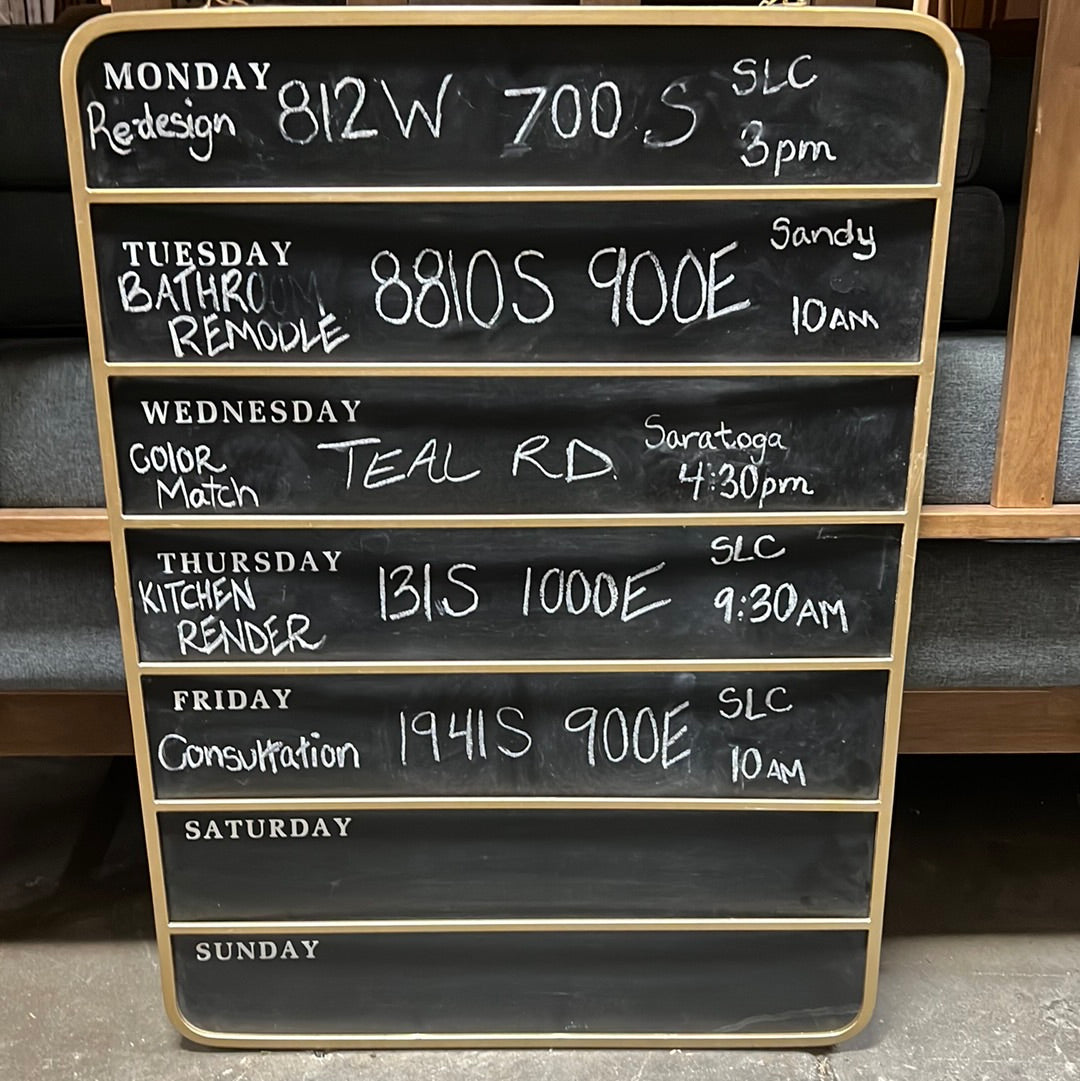 MONDAY
Re-design 812 W 700 S SLC
3pm
TUESDAY
BATHROOM
REMODLE 8810 S 900E Sandy
10AM
WEDNESDAY
COLOR
Match TEAL RD. Saratoga
4:30pm
THURSDAY
KITCHEN
RENDER 131 S 1000E SLC
9:30AM
FRIDAY
Consultation 1941 S 900E SLC
10AM
SATURDAY
SUNDAY